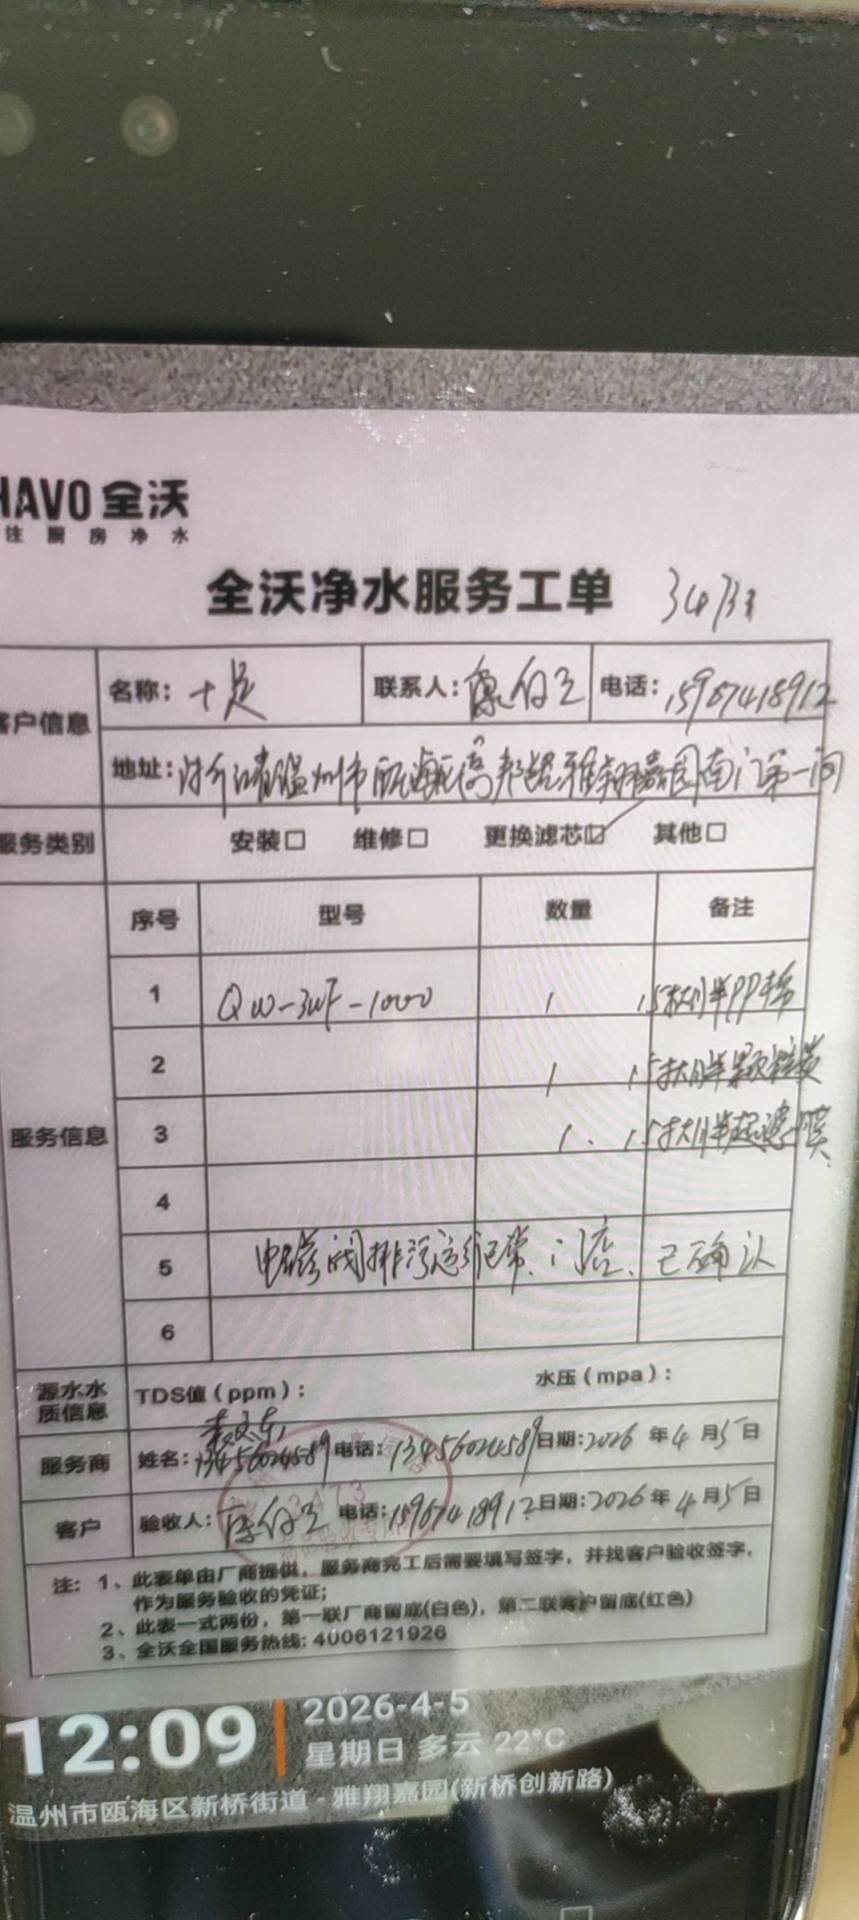 HAVO 全沃
注厨房净水
全沃净水服务工单
客户信息 名称：十足 联系人： 电话：15967418912
地址：浙江省温州市瓯海区 雅翔嘉园南门第一间
服务类别 安装□ 维修□ 更换滤芯☑ 其他□
服务信息 序号 型号 数量 备注
1 QW-3WF-1000 1 PP棉
2 1 颗粒炭
3 1 超滤膜
4
5 电磁阀排污运行正常、门店、已确认
6
源水水质信息 TDS值（ppm）： 水压（mpa）：
服务商 姓名：13456024589 电话：13456024589 日期：2026年4月5日
客户 验收人： 电话：15967418912 日期：2026年4月5日
注：1、此表单由厂商提供，服务商完工后需要填写签字，并找客户验收签字，
作为服务验收的凭证；
2、此表一式两份，第一联厂商留底(白色)，第二联客户留底(红色)
3、全沃全国服务热线: 4006121926
12:09 2026-4-5
星期日 多云 22°C
温州市瓯海区新桥街道 - 雅翔嘉园(新桥创新路)